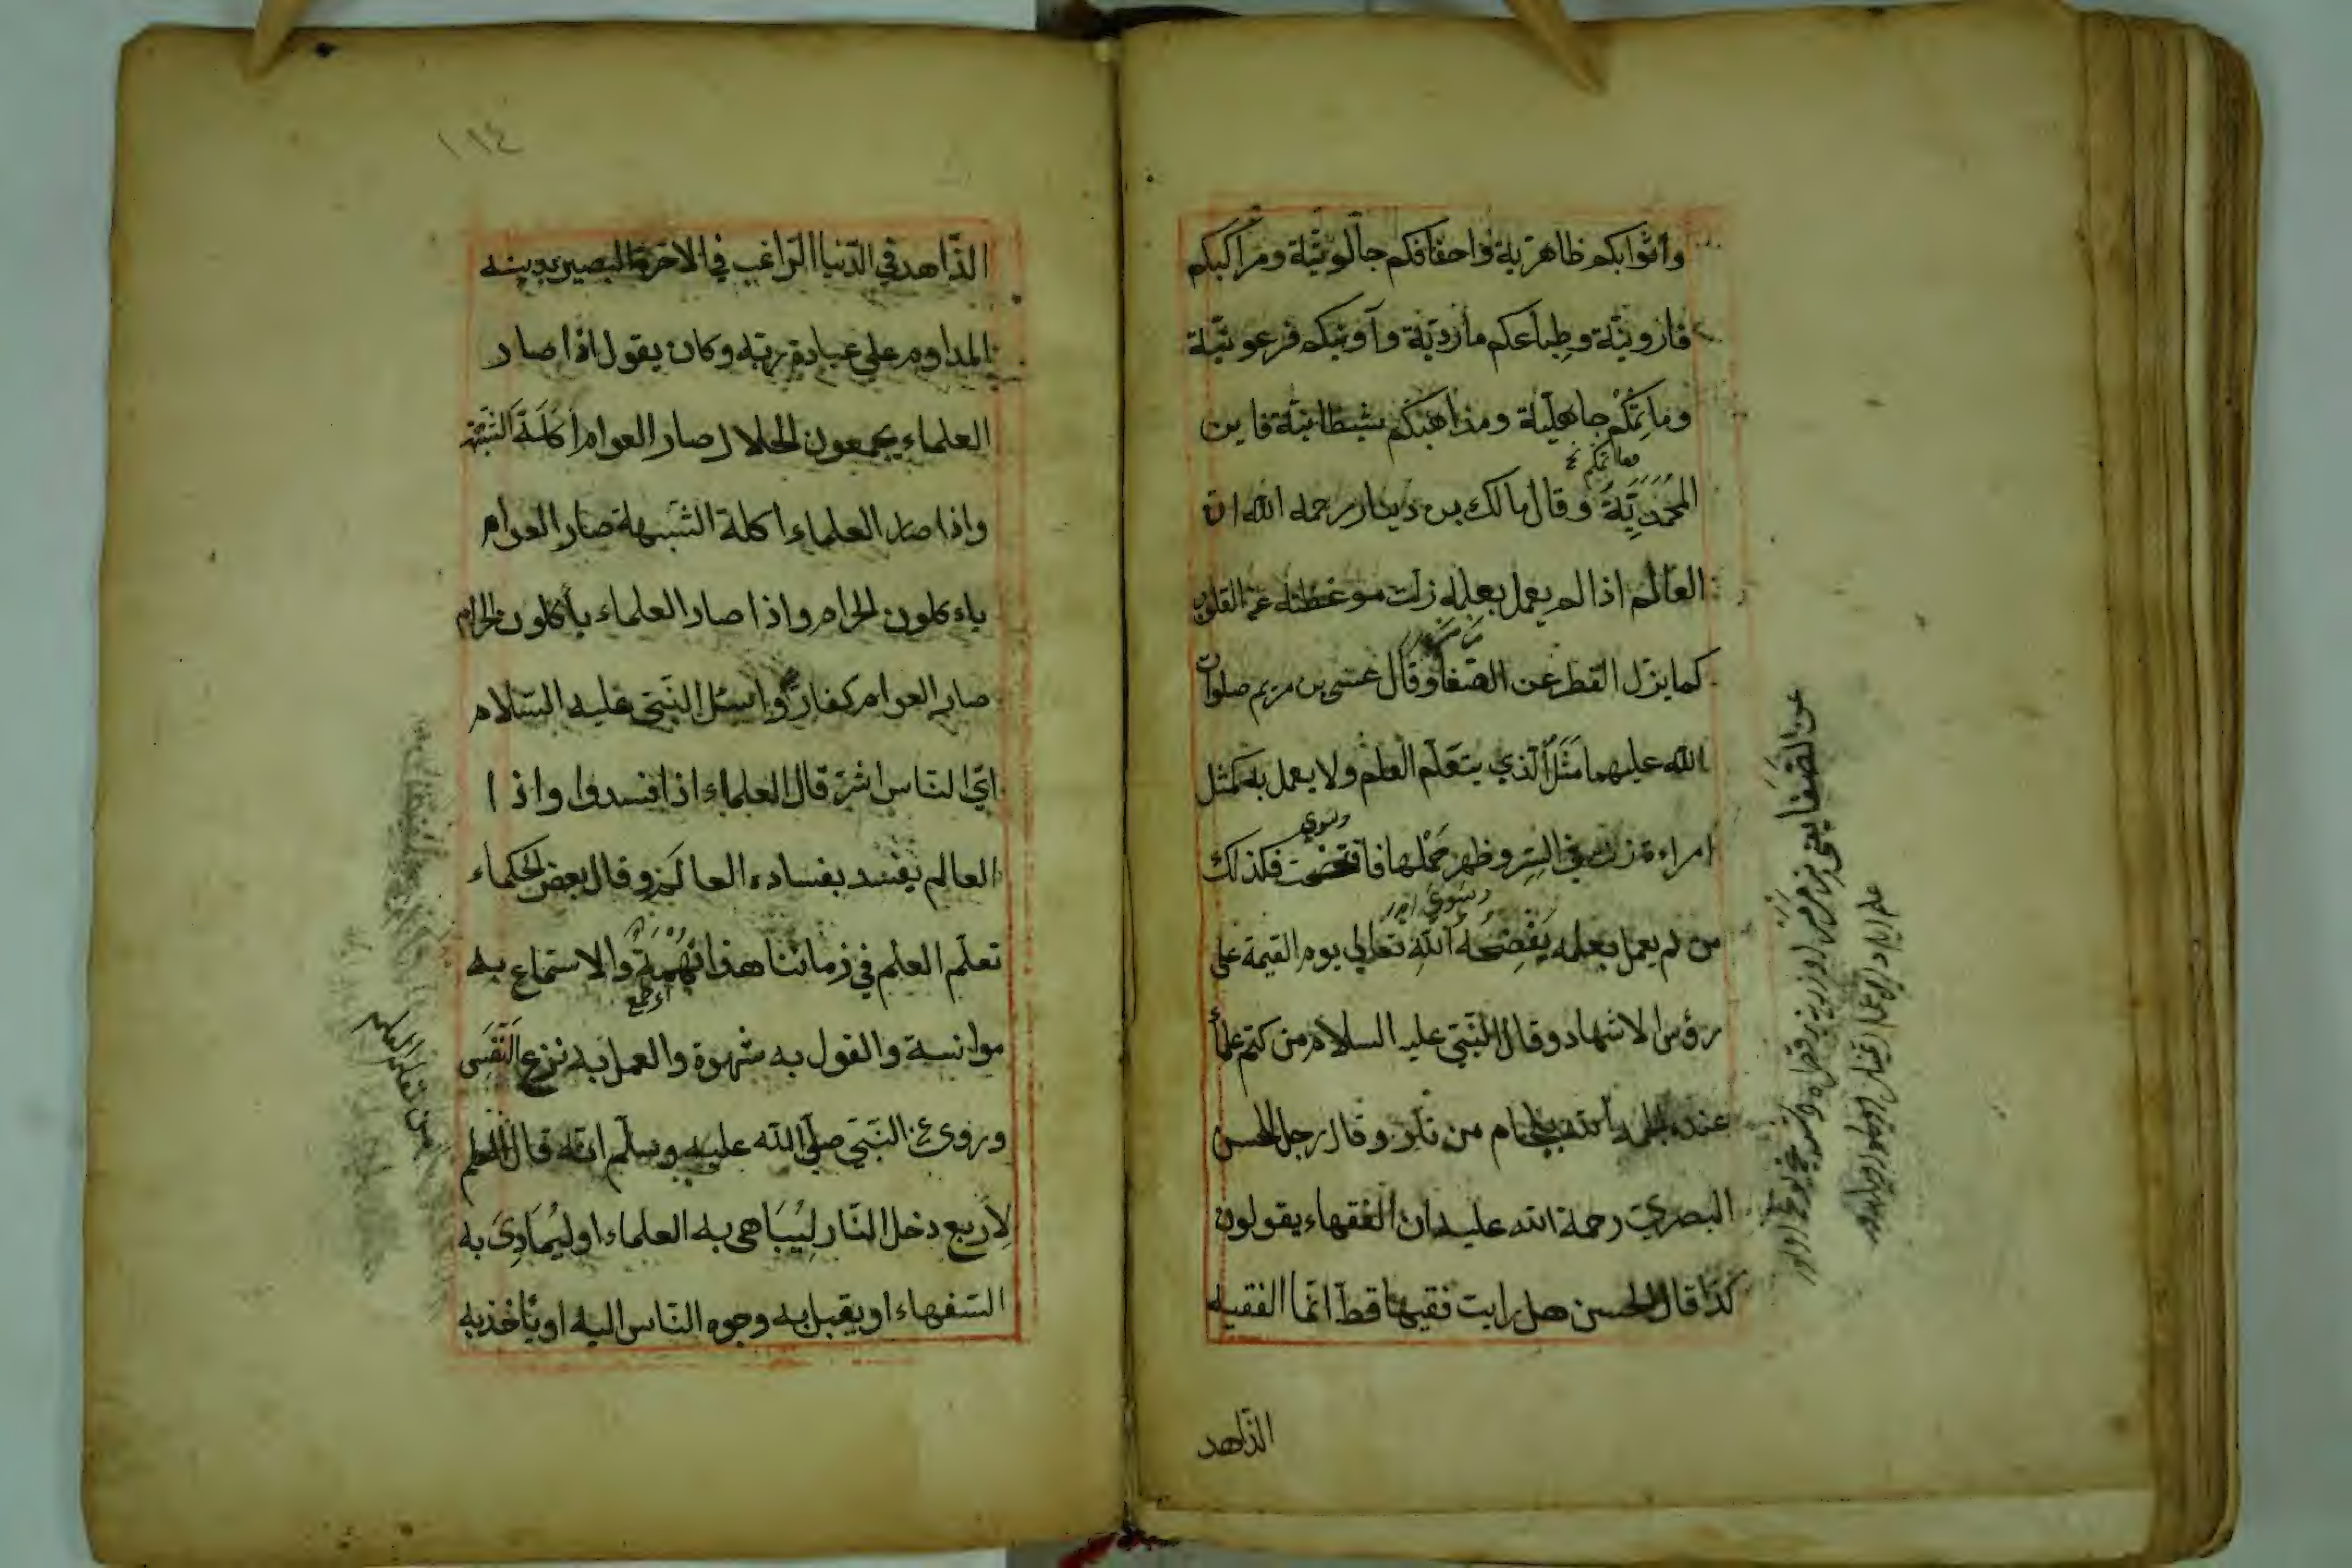 وأثوابكم ظاهرية واخفافكم جالوتية ومراكبكم
قارونية وطباعكم ماردية وآوانيكم فرعونية
ومآتمكم جاهلية ومذاهبكم شيطانية فاين
المحمدية وقال مالك بن دينار رحمه الله ان
العالم اذا لم يعمل بعلمه زلت موعظته عن القلوب
كما يزل القطر عن الصفا وقال عيسى بن مريم صلوات
الله عليهما مثل الذي يتعلم العلم ولا يعمل به كمثل
امراءة زنت في السر وظهر حملها فافتضحت فكذلك
من لم يعمل بعلمه يفضحه الله تعالي يوم القيمة على
رؤس الاشهاد وقال النبي عليه السلام من كتم علماً
عنده الجم بلجام من نار وقال رجل للحسن
البصري رحمة الله عليه ان الفقهاء يقولون
كذا قال الحسن هل رايت فقيها قط انما الفقيه
الزاهد
عن الصفا يعني
١١٤
الزاهد في الدنيا الراغب في الاخرة البصير بدينه
المداوم علي عبادة ربه وكان يقول اذا صار
العلماء يجمعون الحلال صار العوام أكلة الشبهة
واذا صار العلماء اكلة الشبهة صار العوام
ياءكلون الحرام واذا صار العلماء يأكلون الحرام
صار العوام كفار واسئل النبي عليه السلام
اي الناس اشر قال العلماء اذا فسدوا واذا
العالم يفسد بفساده العالم وقال بعض الحكماء
تعلم العلم في زماننا هذا نهمة والاستماع به
موانسة والقول به شهوة والعمل به نزع النفس
وروي عن النبي صلي الله عليه وسلم انه قال العلم
لاربع دخل النار ليباهي به العلماء او ليماري به
السفهاء او يقبل به وجوه الناس اليه او يأخذ به
من تعلم العلم